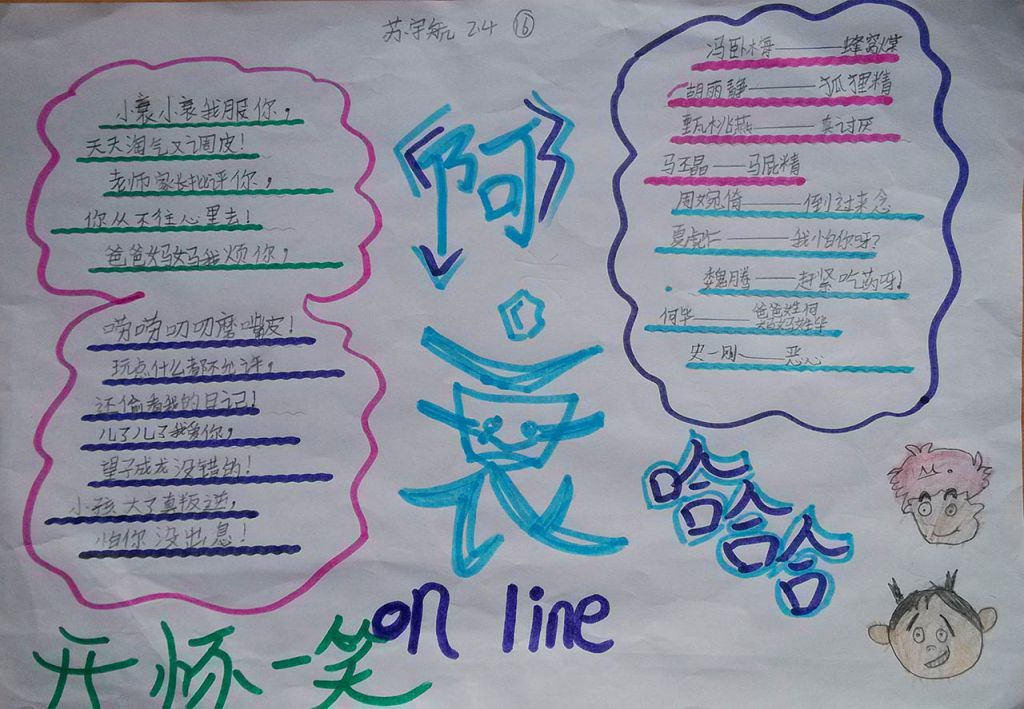 苏宇航 2.4 ⑯
小衰小衰我服你，
天天淘气又调皮！
老师家长批评你，
你从不往心里去！
爸爸妈妈我烦你，
唠唠叨叨磨嘴皮！
玩点什么都不允许，
还偷看我的日记！
儿子儿子我爱你，
望子成龙没错的！
小孩大了真叛逆，
怕你没出息！
阿衰
on line
冯卧梅——蜂窝煤
胡丽静——狐狸精
甄桃燕——真讨厌
马丕晶——马屁精
周婉倚——倒过来念
夏虎仁——我怕你呀？
魏腾——赶紧吃药呀！
何华——爸爸姓何
妈妈姓华
史一刚——恶心
哈哈哈
开怀一笑